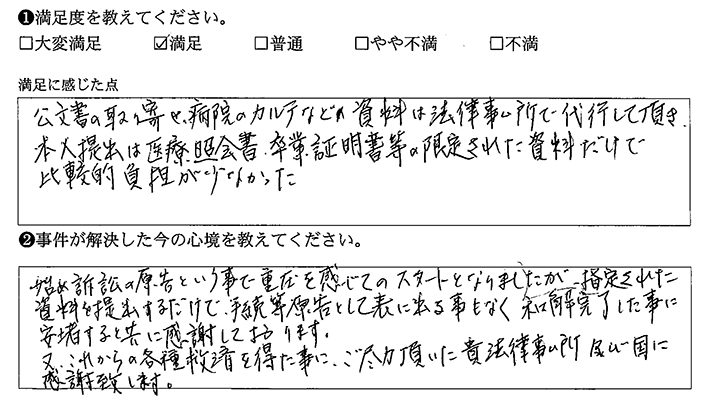 ❶満足度を教えてください。
□大変満足 ☑満足 □普通 □やや不満 □不満
満足に感じた点
公文書の取り寄せ、病院のカルテなどの資料は法律事ム所で代行して頂き、
本人提出は医療照会書、卒業証明書等の限定された資料だけで
比較的負担が少なかった
❷事件が解決した今の心境を教えてください。
始め訴訟の原告という事で重圧を感じてのスタートとなりましたが、指定された
資料を提出するだけで、手続等原告として表に出る事もなく和解完了した事に
安堵すると共に感謝しております。
又、これからの各種救済を得た事に、ご尽力頂いた貴法律事ム所及び国に
感謝致します。